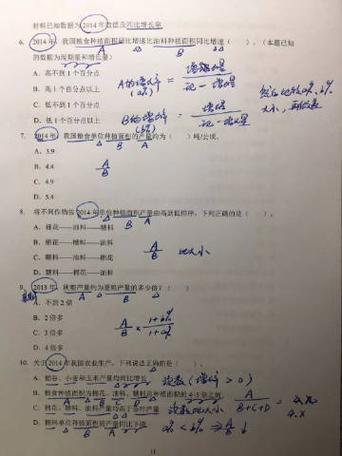 材料已知数据为2014年数据及同比增长率
6. 2014年，我国粮食种植面积同比增速比油料种植面积同比增速（ ）。（本题已知
的数据为现期量和增长量）
A. 高不到1个百分点
B. 高1个百分点以上
C. 低不到1个百分点
D. 低1个百分点以上
A的增长率 = 增长量
(a%) 现-增长量
B的增长率 = 增长量
(b%) 现-增长量
7. 2014年，我国粮食单位种植面积的产量约为（ ）吨/公顷。
A. 3.9
B. 4.4
C. 4.9
D. 5.4
A
B
8. 将不同作物按2014年单位种植面积产量由高到低排序，下列正确的是（ ）。
A. 棉花——油料——糖料
C. 油料——糖料——棉花
D. 糖料——油料——棉花
A/B 比大小
9. 2013年，秋粮产量约为夏粮产量的多少倍？（ ）
A. 不到2倍
B. 2倍多
C. 3倍多
D. 4倍多
A/B × 1+b%/1+a%
10. 关于2014年我国农业生产，下列说法正确的是（ ）。
A. 稻谷、小麦和玉米产量均同比增长
B. 粮食种植面积为棉花、油料、糖料总种植面积的4-5倍之间
A/B+C+D
C. 棉花、糖料、油料产量均高于茶叶产量
D. 糖料单位种植面积产量同比下降
a% < b%
11